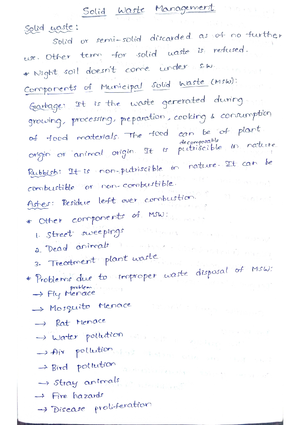 Solid Waste Management
Solid waste:
Solid or semi-solid discarded as of no further
use. Other term for solid waste is refused.
* Night soil doesn't come under S.W
Components of Municipal Solid Waste (MSW):
Garbage: It is the waste generated during
growing, processing, preparation, cooking & consumption
of food materials. The food can be of plant
decomposable
origin or animal origin. It is putriscible in nature
Rubbish: It is non-putriscible in nature. It can be
combustible or non-combustible.
Ashes: Residue left over combustion.
* Other components of MSW:
1. Street sweepings
2. Dead animals
3. Treatment plant waste
* Problems due to improper waste disposal of MSW:
problem
→ Fly Menace
→ Mosquito Menace
→ Rat Menace
→ Water pollution
→ Air pollution
→ Bird pollution
→ Stray animals
→ Fire hazards
→ Disease proliferation